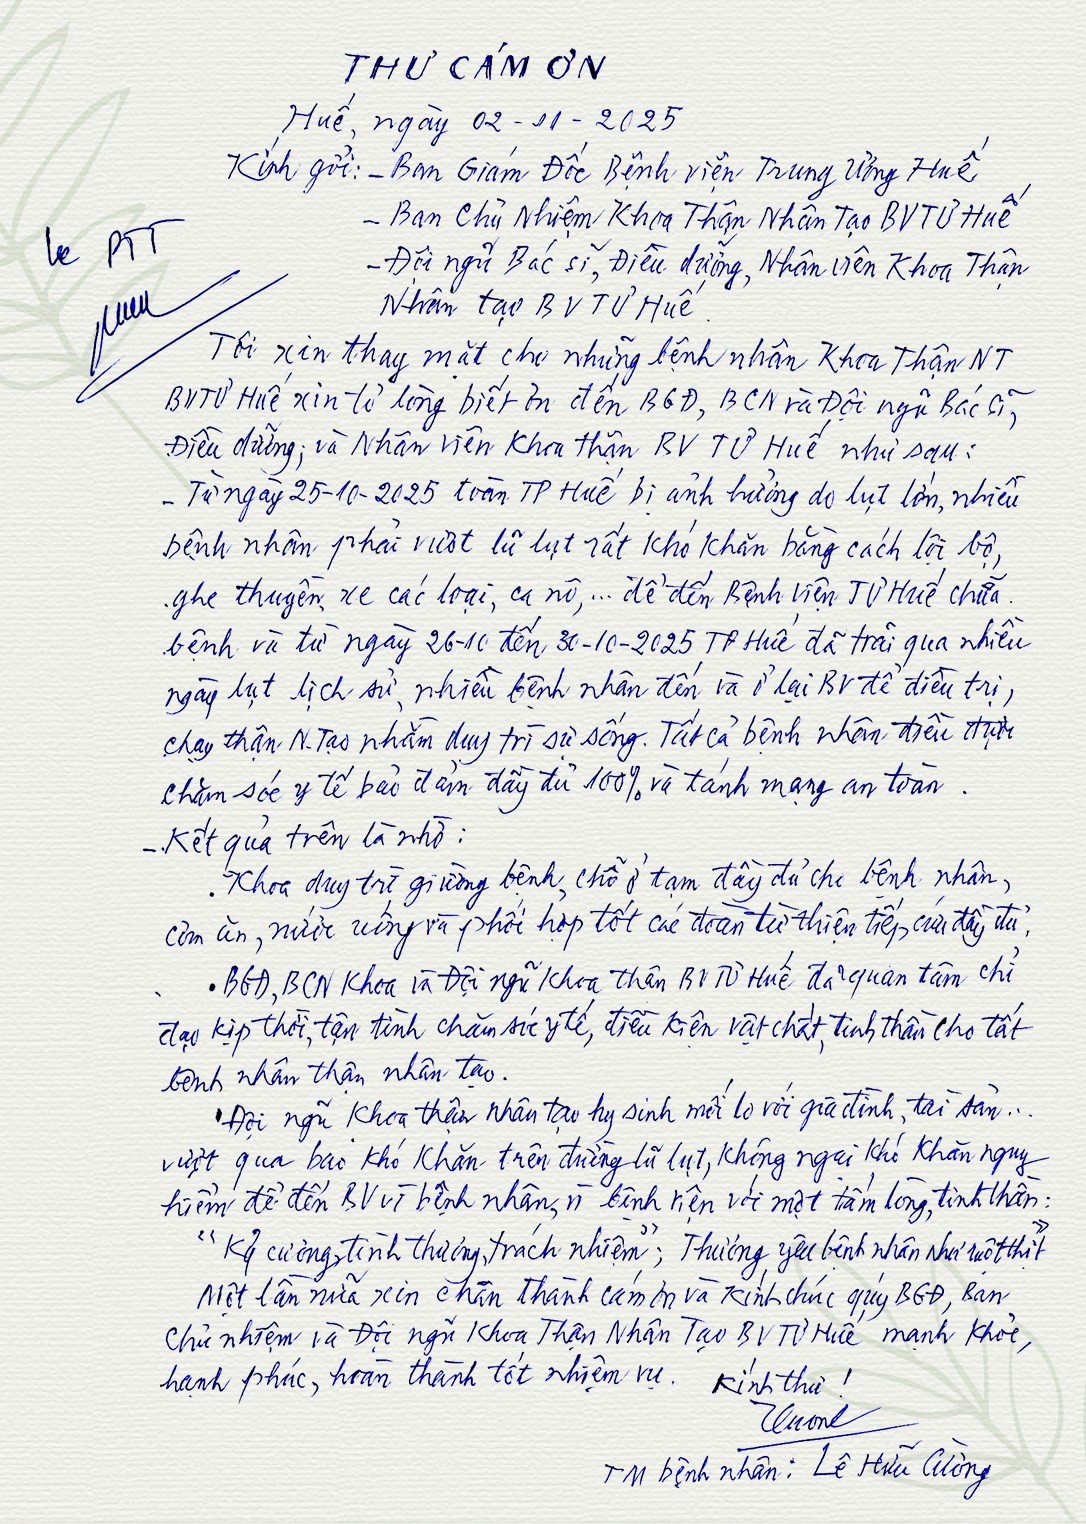 THƯ CÁM ƠN
Huế, ngày 02-11-2025
Kính gửi: - Ban Giám Đốc Bệnh viện Trung Ương Huế
- Ban Chủ Nhiệm Khoa Thận Nhân Tạo BVTƯ Huế
- Đội ngũ Bác sĩ, Điều dưỡng, Nhân viên Khoa Thận
Nhân tạo BVTƯ Huế
PTT
Tôi xin thay mặt cho những bệnh nhân Khoa Thận NT
BVTƯ Huế xin tỏ lòng biết ơn đến BGĐ, BCN và Đội ngũ Bác Sĩ,
Điều dưỡng, và Nhân viên Khoa thận BV TƯ Huế như sau:
- Từ ngày 25-10-2025 toàn TP Huế bị ảnh hưởng do lụt lớn, nhiều
bệnh nhân phải vượt lũ lụt rất khó khăn bằng cách lội bộ,
ghe thuyền, xe các loại, ca nô,... để đến Bệnh viện TƯ Huế chữa
bệnh và từ ngày 26-10 đến 30-10-2025 TP Huế đã trải qua nhiều
ngày lụt lịch sử, nhiều bệnh nhân đến và ở lại BV để điều trị,
chạy thận N.Tạo nhằm duy trì sự sống. Tất cả bệnh nhân điều được
chăm sóc y tế bảo đảm đầy đủ 100% và tánh mạng an toàn.
- Kết quả trên là nhờ:
. Khoa duy trì giường bệnh, chỗ ở tạm đầy đủ cho bệnh nhân,
cơm ăn, nước uống và phối hợp tốt các đoàn từ thiện tiếp cứu đầy đủ.
• BGĐ, BCN Khoa và Đội ngũ Khoa thận BVTƯ Huế đã quan tâm chỉ
đạo kịp thời, tận tình chăm sóc y tế, điều kiện vật chất, tinh thần cho tất
bệnh nhân thận nhân tạo.
• Đội ngũ Khoa thận nhân tạo hy sinh mối lo với gia đình, tài sản...
vượt qua bao khó khăn trên đường lũ lụt, không ngại khó khăn nguy
hiểm để đến BV vì bệnh nhân, vì bệnh viện với một tấm lòng, tinh thần:
"Kỷ cương, tình thương, trách nhiệm"; Thương yêu bệnh nhân như ruột thịt"
Một lần nữa xin chân thành cám ơn và kính chúc quý BGĐ, Ban
Chủ nhiệm và Đội ngũ Khoa Thận Nhân Tạo BVTƯ Huế mạnh khỏe,
hạnh phúc, hoàn thành tốt nhiệm vụ. Kính thư!
TM bệnh nhân: Lê Hữu Cường